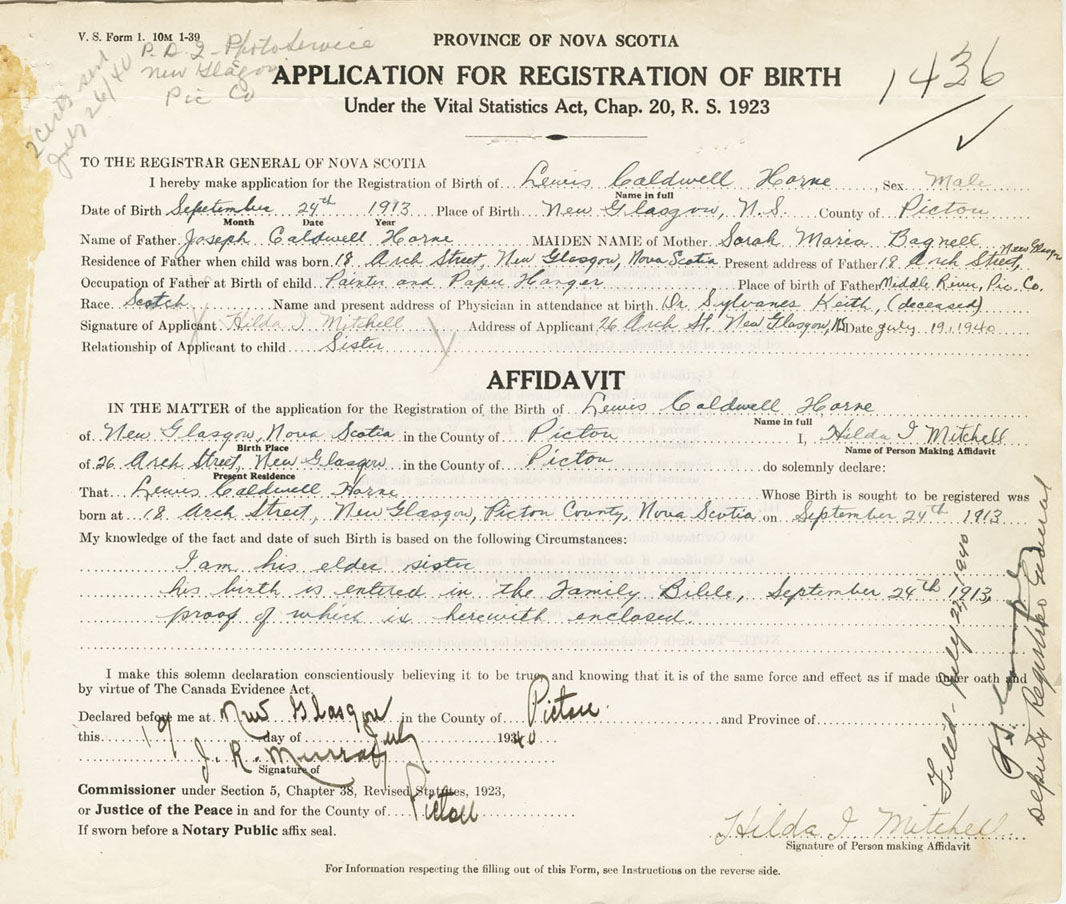 V. S. Form 1. 10M 1-39
P. D. Q - Photo Service
New Glasgow
Pic Co
2 Certs sent
July 26/40
PROVINCE OF NOVA SCOTIA
APPLICATION FOR REGISTRATION OF BIRTH
Under the Vital Statistics Act, Chap. 20, R. S. 1923
1436
TO THE REGISTRAR GENERAL OF NOVA SCOTIA
I hereby make application for the Registration of Birth of Lewis Caldwell Horne, Sex Male
Name in full
Date of Birth September 24th 1913 Place of Birth New Glasgow, N.S. County of Pictou
Month Date Year
Name of Father Joseph Caldwell Horne MAIDEN NAME of Mother Sarah Maria Bagnell
Residence of Father when child was born 18 Arch Street, New Glasgow, Nova Scotia Present address of Father 18 Arch Street, New Glasgow
Occupation of Father at Birth of child Painter and Paper Hanger Place of birth of Father Middle River, Pic. Co.
Race Scotch Name and present address of Physician in attendance at birth Dr. Sylvanes Keith, (deceased)
Signature of Applicant Hilda I Mitchell Address of Applicant 26 Arch St. New Glasgow, NS Date July 19, 1940
Relationship of Applicant to child Sister
AFFIDAVIT
IN THE MATTER of the application for the Registration of the Birth of Lewis Caldwell Horne
Name in full
of New Glasgow, Nova Scotia in the County of Pictou I, Hilda I Mitchell
Birth Place Name of Person Making Affidavit
of 26 Arch Street, New Glasgow in the County of Pictou do solemnly declare:
Present Residence
That Lewis Caldwell Horne Whose Birth is sought to be registered was
born at 18 Arch Street, New Glasgow, Pictou County, Nova Scotia on September 24th 1913
My knowledge of the fact and date of such Birth is based on the following Circumstances:
I am his elder sister
his birth is entered in the Family Bible, September 24th 1913,
proof of which is herewith enclosed.
I make this solemn declaration conscientiously believing it to be true, and knowing that it is of the same force and effect as if made under oath and
by virtue of The Canada Evidence Act.
Declared before me at New Glasgow in the County of Pictou and Province of
this 19 day of July 1940
J. R. Murray
Signature of
Commissioner under Section 5, Chapter 38, Revised Statutes, 1923,
or Justice of the Peace in and for the County of Pictou
If sworn before a Notary Public affix seal.
Hilda I Mitchell
Signature of Person making Affidavit
Filed - July 22, 1940
Deputy Registrar General
For Information respecting the filling out of this Form, see Instructions on the reverse side.